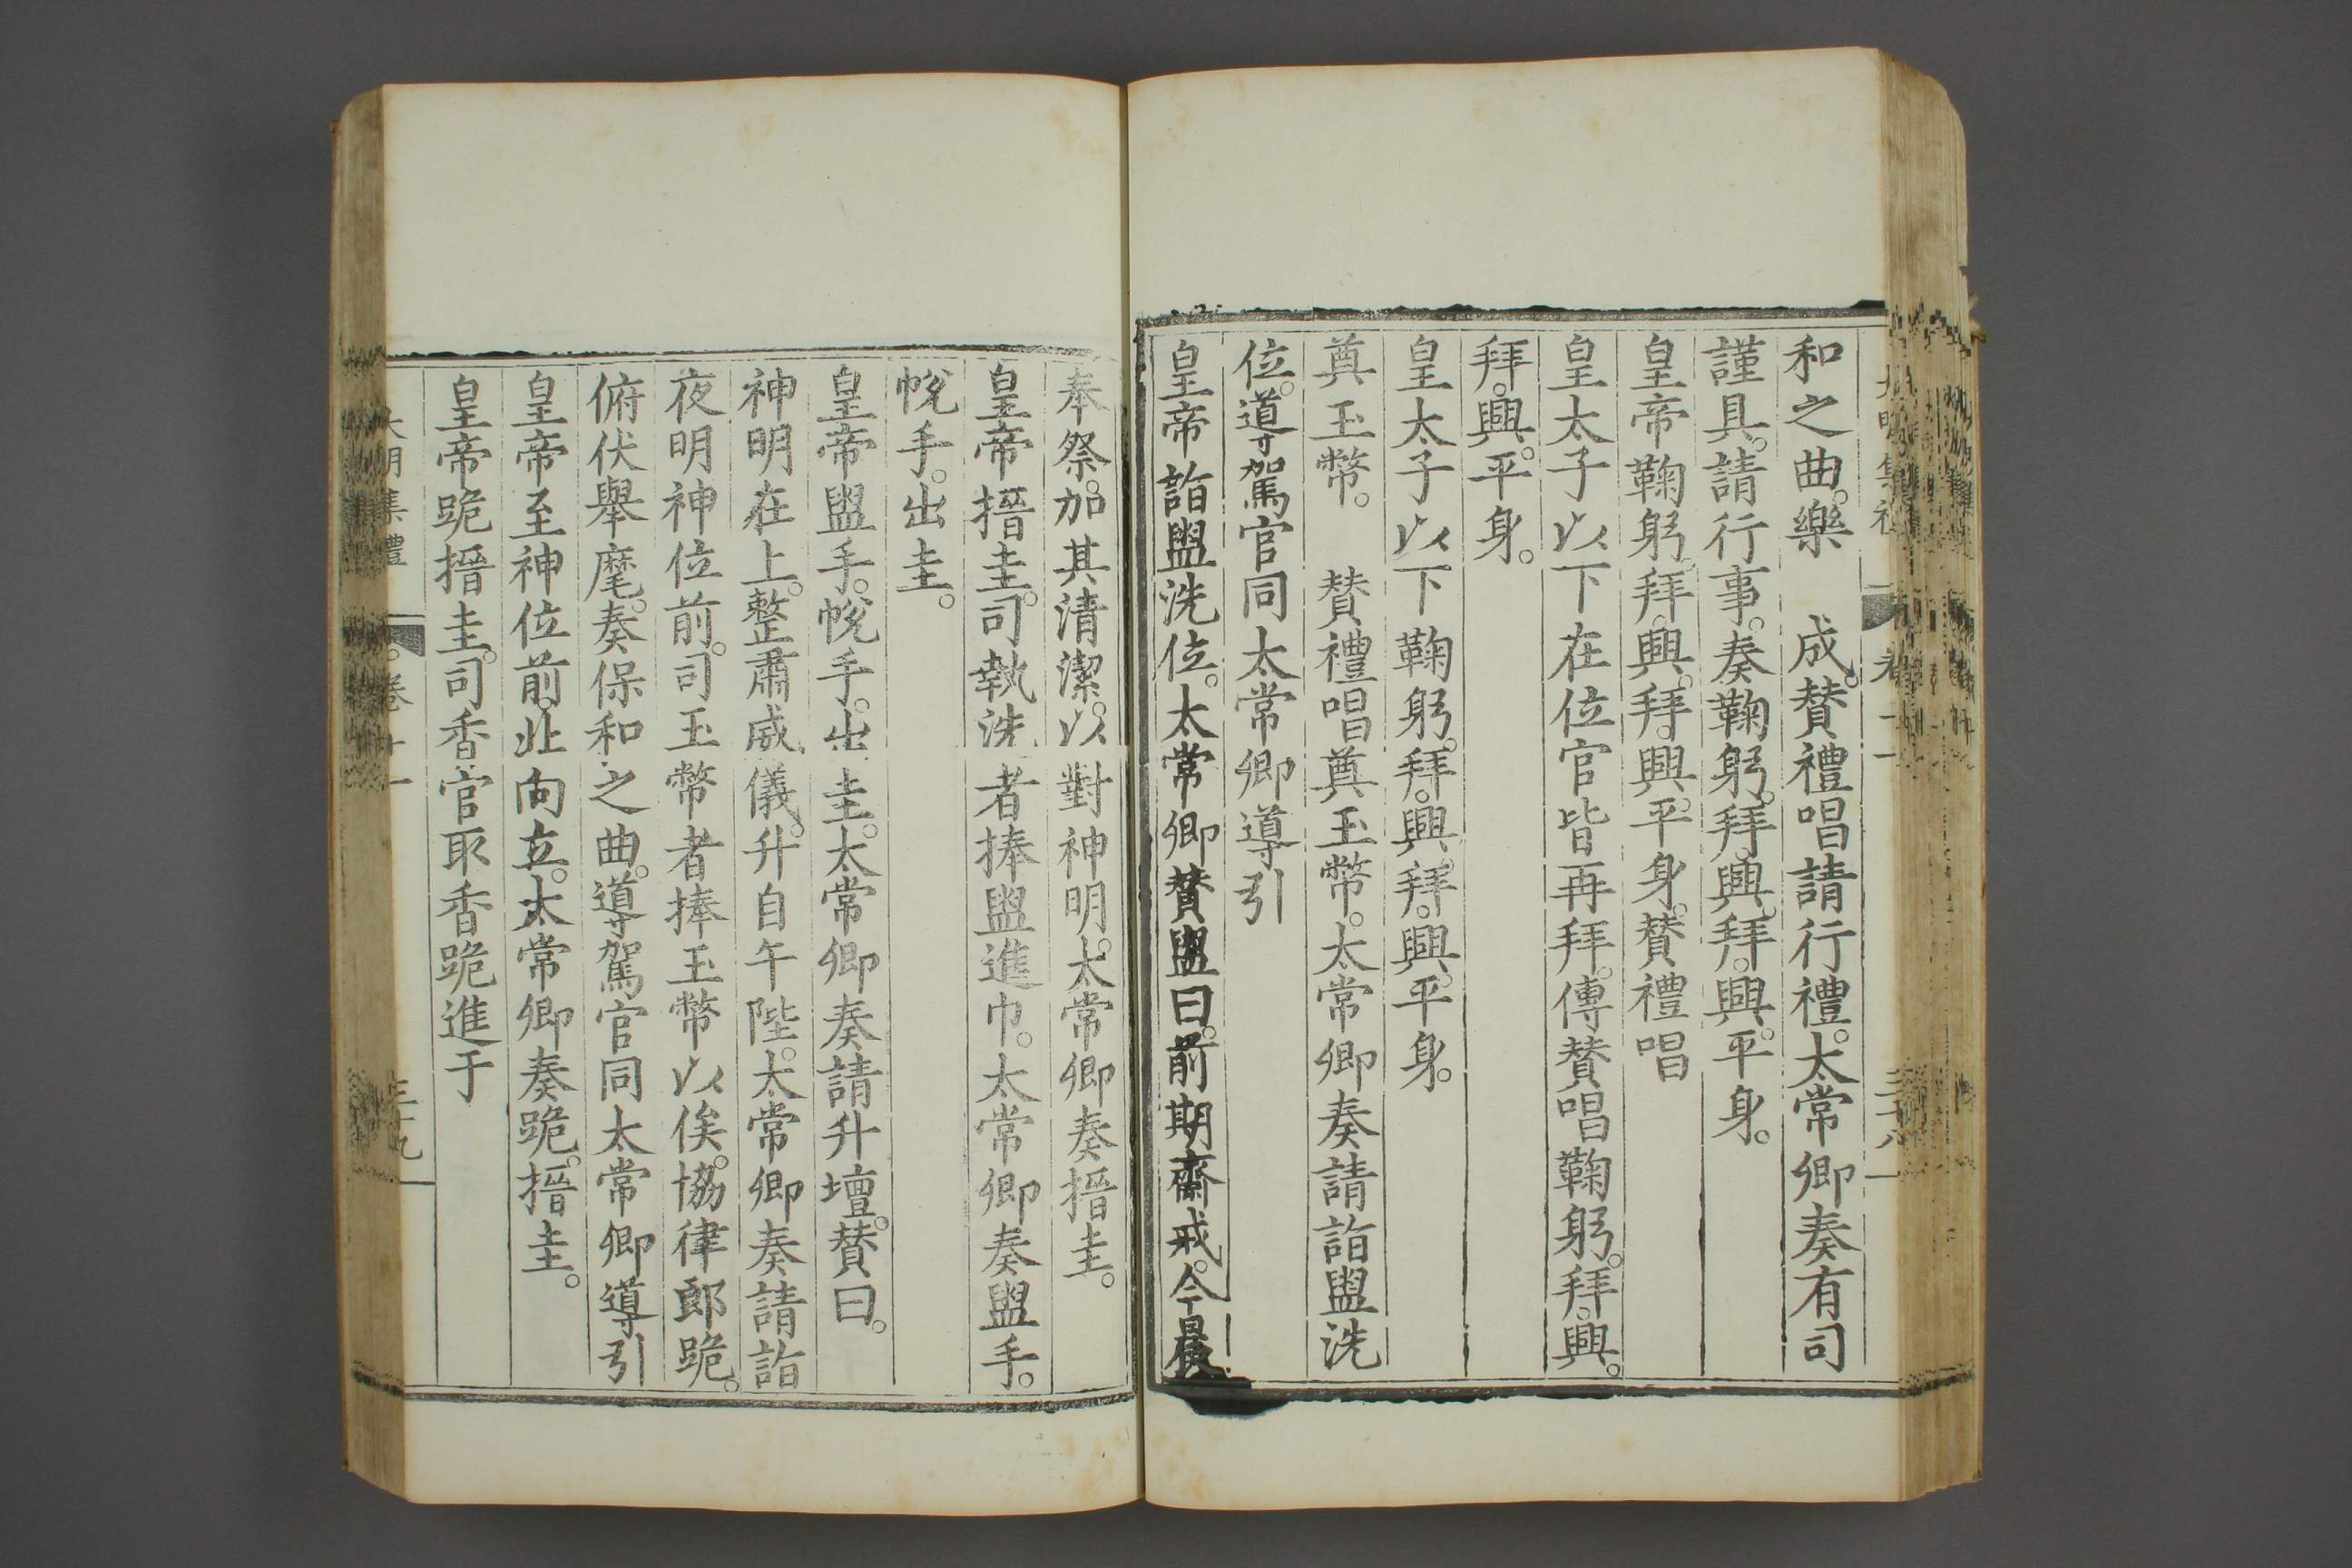 和之曲。樂　成。贊禮唱請行禮。太常卿奏有司
謹具。請行事。奏鞠躬。拜。興。拜。興。平身。
皇帝鞠躬。拜。興。拜。興。平身。贊禮唱
皇太子以下在位官皆再拜。傳贊唱鞠躬。拜。興。
拜。興。平身。
皇太子以下鞠躬。拜。興。拜。興。平身。
奠玉幣。　贊禮唱奠玉幣。太常卿奏請詣盥洗
位。導駕官同太常卿導引
皇帝詣盥洗位。太常卿贊盥曰。前期齋戒。今晨
奉祭。加其清潔。以對神明。太常卿奏搢圭。
皇帝搢圭。司執洗者捧盥進巾。太常卿奏盥手。
帨手。出圭。
皇帝盥手。帨手。出圭。太常卿奏請升壇。贊曰。
神明在上。整肅威儀。升自午陛。太常卿奏請詣
夜明神位前。司玉幣者捧玉幣以俟。協律郎跪。
俯伏舉麾。奏保和之曲。導駕官同太常卿導引
皇帝至神位前。北向立。太常卿奏跪。搢圭。
皇帝跪搢圭。司香官取香跪進于
大明集禮　卷十一　三十九